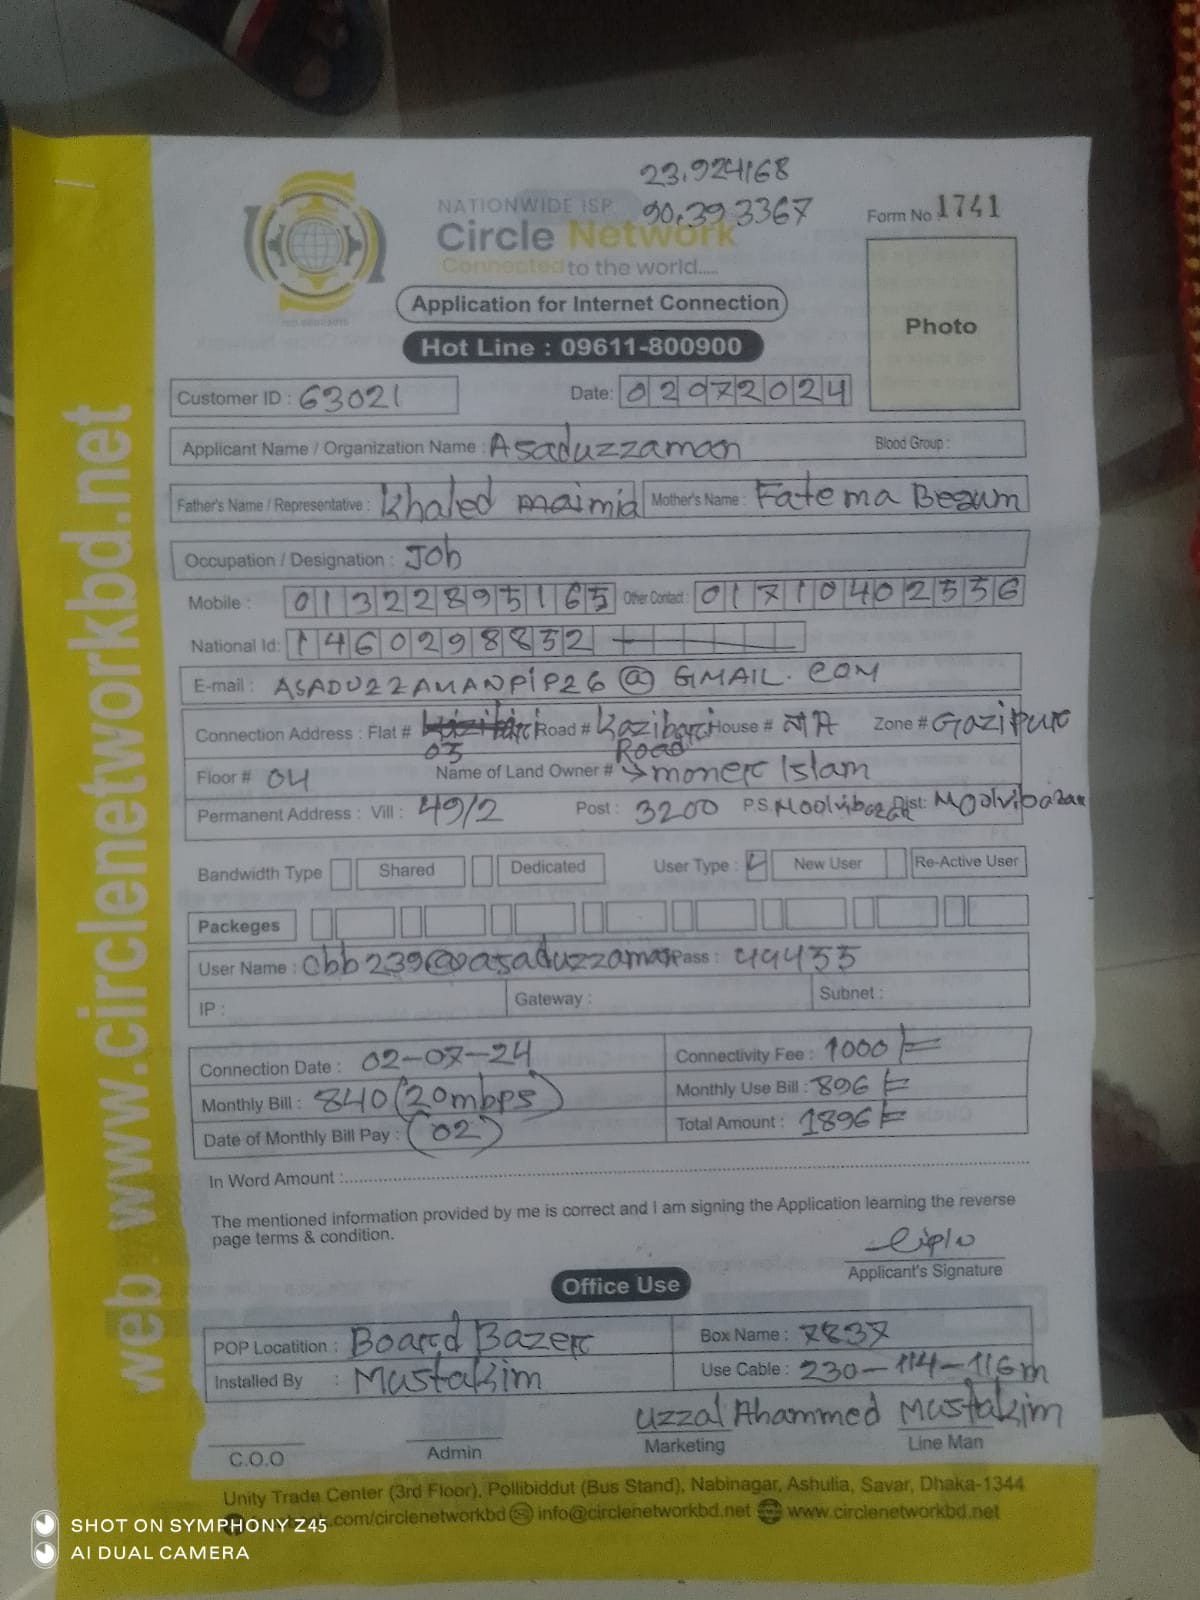 23.924168
90.393367
NATIONWIDE ISP
Circle Network
Connected to the world.....
Form No 1741
Application for Internet Connection
Photo
Hot Line : 09611-800900
Customer ID : 63021 Date: 02072024
Applicant Name / Organization Name : Asaduzzaman Blood Group :
Father's Name / Representative : Khaled Mother's Name : Fatema Begum
Occupation / Designation : Job
Mobile : 01322895165 Other Contact : 01710402556
National Id: 1460298852
E-mail : ASADUZZAMANPIP26@GMAIL.COM
Connection Address : Flat # 03 Road # Kazibari Road House # NA Zone # Gazipur
Floor # 04 Name of Land Owner # → moner Islam
Permanent Address : Vill : 49/2 Post : 3200 P.S Moolvibazar Dist: Moolvibazar
Bandwidth Type Shared Dedicated User Type : New User Re-Active User
Packeges
User Name : cbb239@asaduzzaman Pass : 49455
IP : Gateway : Subnet :
Connection Date : 02-07-24 Connectivity Fee : 1000/=
Monthly Bill : 840 (20mbps) Monthly Use Bill : 896/=
Date of Monthly Bill Pay : (02) Total Amount : 1896/=
In Word Amount :
The mentioned information provided by me is correct and I am signing the Application learning the reverse
page terms & condition.
Applicant's Signature
Office Use
POP Locatition : Board Bazer Box Name : 7837
Installed By : Mustakim Use Cable : 230-114-116m
Uzzal Ahammed Mustakim
C.O.O Admin Marketing Line Man
Unity Trade Center (3rd Floor), Pollibiddut (Bus Stand), Nabinagar, Ashulia, Savar, Dhaka-1344
.com/circlenetworkbd info@circlenetworkbd.net www.circlenetworkbd.net
web : www.circlenetworkbd.net
SHOT ON SYMPHONY Z45
AI DUAL CAMERA